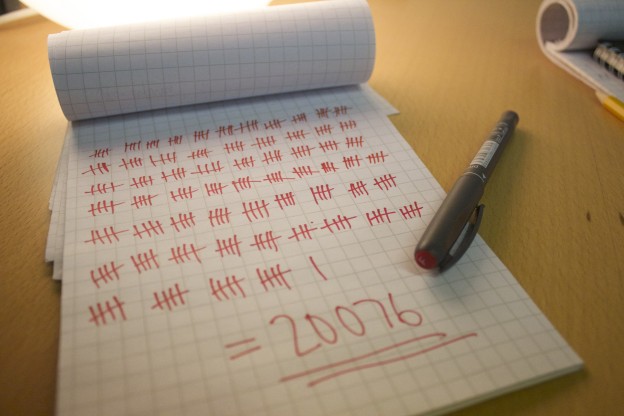 = 20076